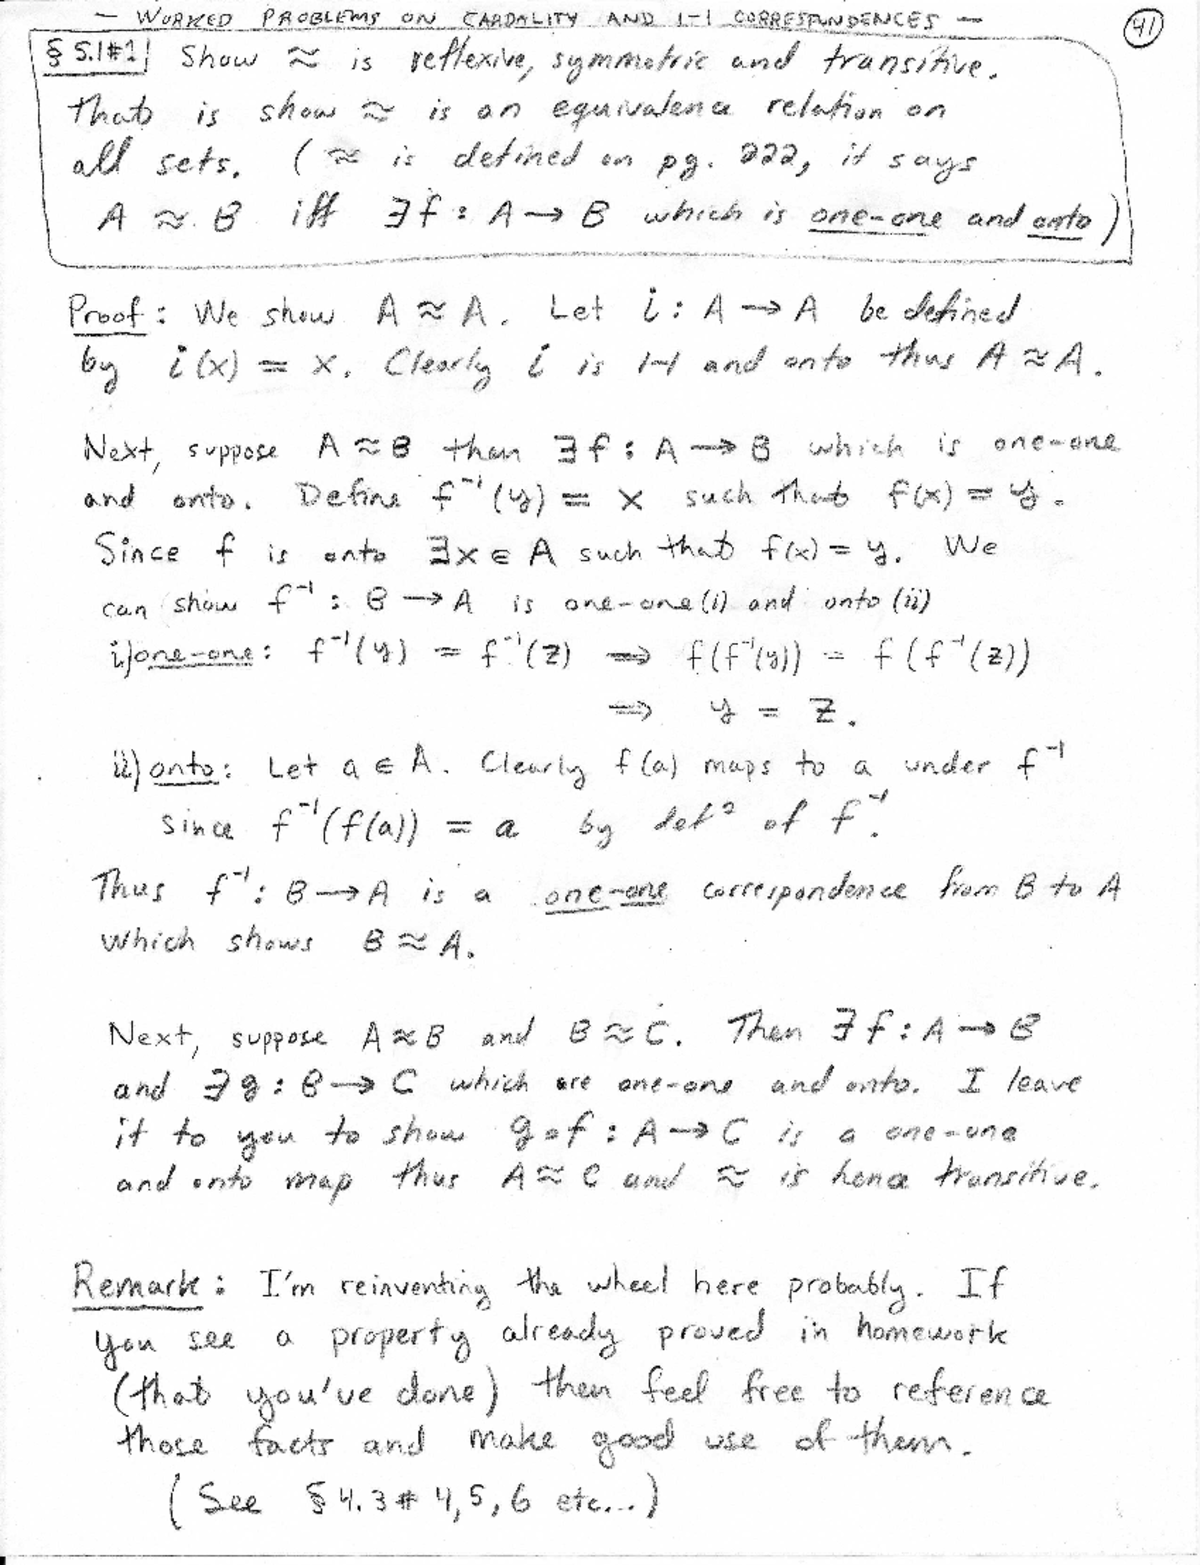 — WORKED PROBLEMS ON CARDALITY AND 1-1 CORRESPUNDENCES —
41
§ 5.1#1 Show ≈ is reflexive, symmetric and transitive.
That is show ≈ is an equivalence relation on
all sets. ( ≈ is defined on pg. 222, it says
A ≈ B iff ∃f : A → B which is one-one and onto )
Proof : We show A ≈ A. Let i : A → A be defined
by i(x) = x. Clearly i is 1-1 and onto thus A ≈ A.
Next, suppose A ≈ B then ∃f : A → B which is one-one
and onto. Define f⁻¹(y) = x such that f(x) = y.
Since f is onto ∃x ∈ A such that f(x) = y. We
can show f⁻¹ : B → A is one-one (i) and onto (ii)
i) one-one : f⁻¹(y) = f⁻¹(z) ⟹ f(f⁻¹(y)) = f(f⁻¹(z))
⟹ y = z.
ii) onto : Let a ∈ A. Clearly f(a) maps to a under f⁻¹
since f⁻¹(f(a)) = a by defⁿ of f⁻¹.
Thus f⁻¹ : B → A is a one-one correspondence from B to A
which shows B ≈ A.
Next, suppose A ≈ B and B ≈ C. Then ∃f : A → B
and ∃g : B → C which are one-one and onto. I leave
it to you to show g∘f : A → C is a one-one
and onto map thus A ≈ C and ≈ is hence transitive.
Remark : I'm reinventing the wheel here probably. If
you see a property already proved in homework
(that you've done) then feel free to reference
those facts and make good use of them.
(See § 4.3 # 4,5,6 etc...)